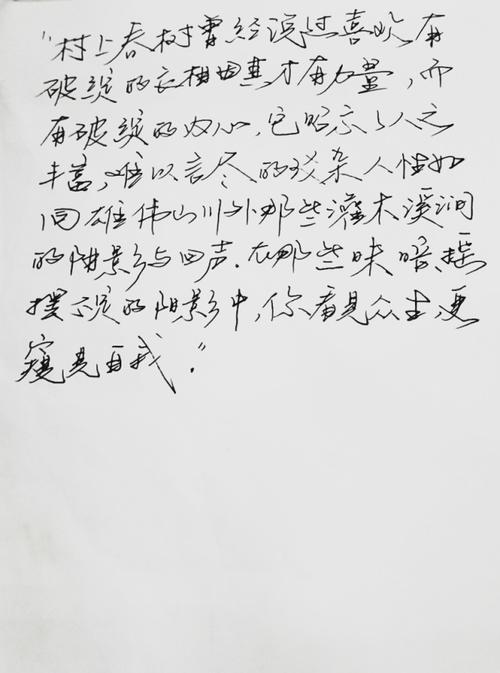 "村上春树曾经说过喜欢有
破绽的衣相因其才有力量，而
有破绽的内心，它昭示了人之
丰富，难以言尽的驳杂人性如
同雄伟山川外那些灌木溪涧
的阴影与回声.在那些昧暗、摇
摆不定的阴影中，你看见众生，更
窥见自我."